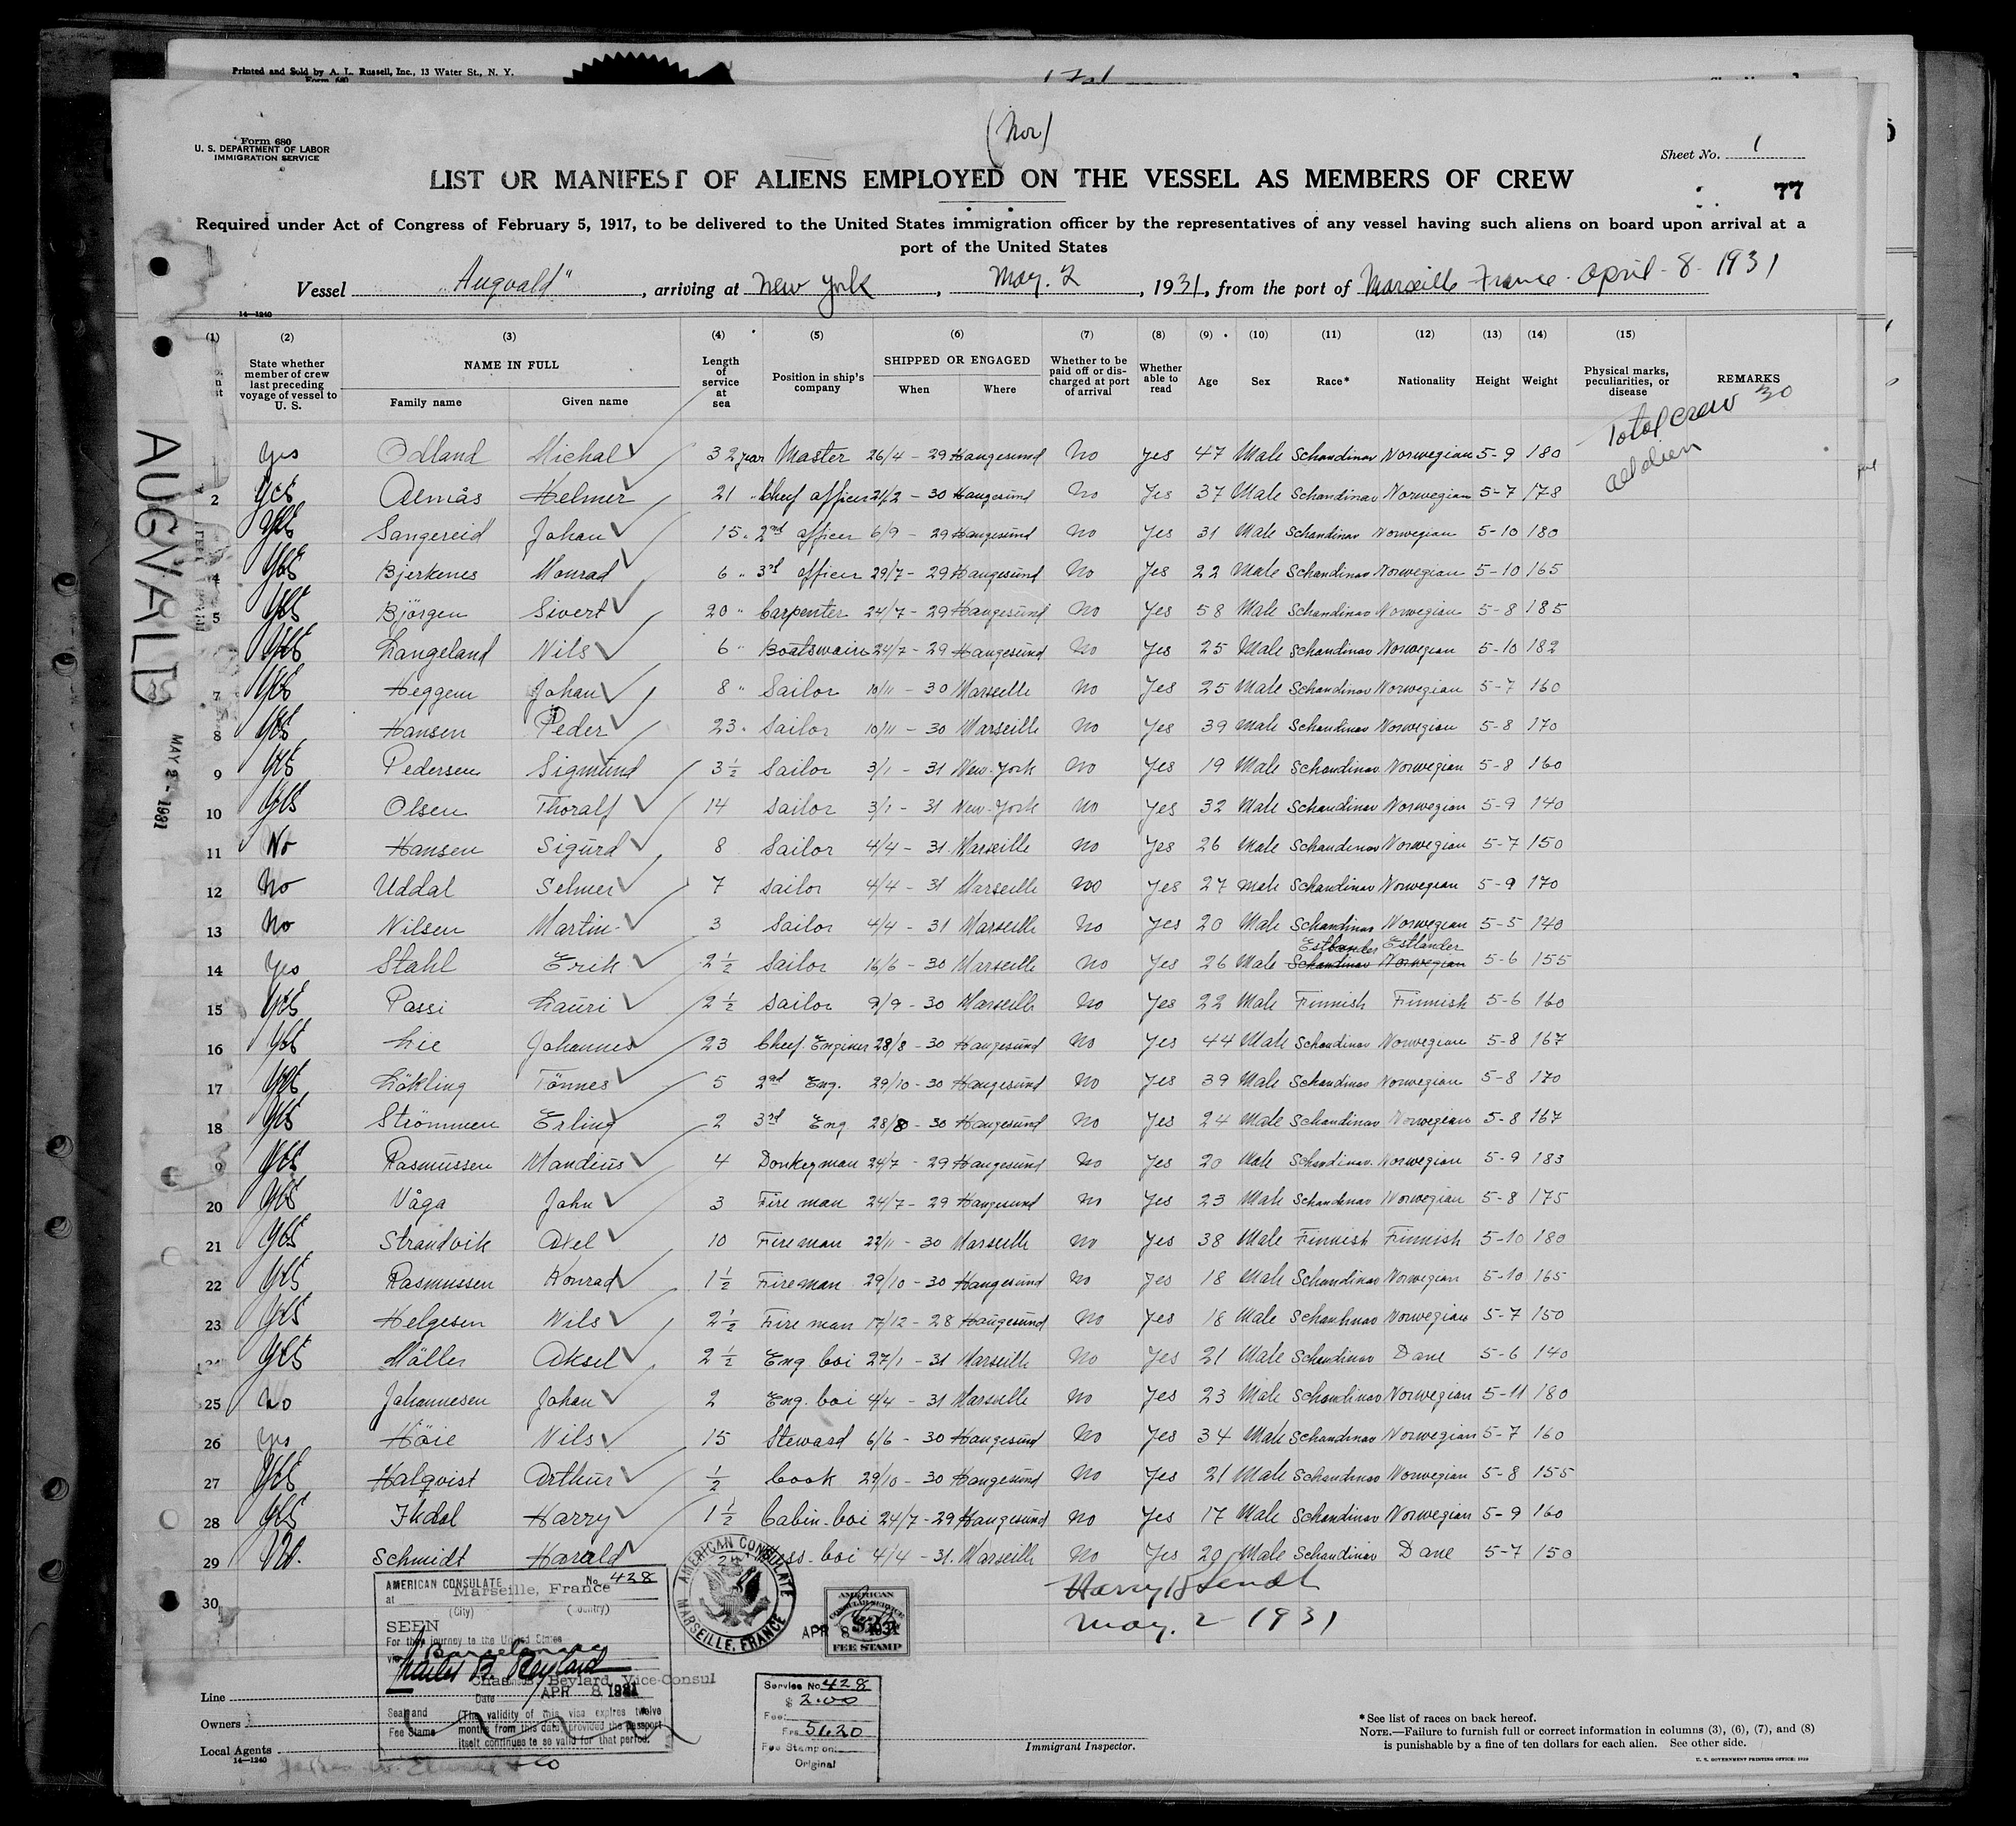 Printed and Sold by A. L. Russell, Inc., 13 Water St., N. Y.
Form 680
(Nor)
Form 680
U. S. DEPARTMENT OF LABOR
IMMIGRATION SERVICE
Sheet No. 1
LIST OR MANIFEST OF ALIENS EMPLOYED ON THE VESSEL AS MEMBERS OF CREW
77
Required under Act of Congress of February 5, 1917, to be delivered to the United States immigration officer by the representatives of any vessel having such aliens on board upon arrival at a
port of the United States
Vessel "Augvald", arriving at New York, May. 2, 1931, from the port of Marseille France. April-8-1931
14—1240
(1) (2) (3) (4) (5) (6) (7) (8) (9) (10) (11) (12) (13) (14) (15)
State whether member of crew last preceding voyage of vessel to U. S.
NAME IN FULL
Family name Given name
Length of service at sea
Position in ship's company
SHIPPED OR ENGAGED
When Where
Whether to be paid off or discharged at port of arrival
Whether able to read
Age Sex Race* Nationality Height Weight
Physical marks, peculiarities, or disease
REMARKS
Total crew 30
all alien
AUGVALD
MAY 2 - 1931
Yes Odland Michal 32 year Master 26/4 - 29 Haugesund No Yes 47 Male Schandinav Norwegian 5-9 180
2 Yes Almås Helmer 21 " Cheef officer 21/2 - 30 Haugesund No Yes 37 Male Schandinav Norwegian 5-7 178
Yes Sangereid Johan 15 " 2nd officer 6/9 - 29 Haugesund No Yes 31 Male Schandinav Norwegian 5-10 180
4 Yes Bjerkenes Monrad 6 " 3rd officer 29/7 - 29 Haugesund No Yes 22 Male Schandinav Norwegian 5-10 165
5 Yes Bjørgen Sivert 20 " Carpenter 24/7 - 29 Haugesund No Yes 58 Male Schandinav Norwegian 5-8 185
Yes Langeland Nils 6 " Boatswain 24/7 - 29 Haugesund No Yes 25 Male Schandinav Norwegian 5-10 182
7 Yes Heggem Johan 8 " Sailor 10/11 - 30 Marseille No Yes 25 Male Schandinav Norwegian 5-7 160
8 Yes Hansen Peder 23 " Sailor 10/11 - 30 Marseille No Yes 39 Male Schandinav Norwegian 5-8 170
9 Yes Pedersen Sigmund 3 1/2 Sailor 3/1 - 31 New-York No Yes 19 Male Schandinav Norwegian 5-8 160
10 Yes Olsen Thoralf 14 Sailor 3/1 - 31 New-York No Yes 32 Male Schandinav Norwegian 5-9 140
11 No Hansen Sigurd 8 Sailor 4/4 - 31 Marseille No Yes 26 Male Schandinav Norwegian 5-7 150
12 No Uddal Selmer 7 Sailor 4/4 - 31 Marseille No Yes 27 Male Schandinav Norwegian 5-9 170
13 No Nilsen Martin 3 Sailor 4/4 - 31 Marseille No Yes 20 Male Schandinav Norwegian 5-5 140
Estlander Estlander
14 Yes Stahl Erik 2 1/2 Sailor 16/6 - 30 Marseille No Yes 26 Male Schandinav Norwegian 5-6 155
15 Yes Passi Lauri 2 1/2 Sailor 9/9 - 30 Marseille No Yes 22 Male Finnish Finnish 5-6 160
16 Yes Lie Johannes 23 Cheef. Enginer 28/8 - 30 Haugesund No Yes 44 Male Schandinav Norwegian 5-8 167
17 Yes Lökling Tönnes 5 2nd Eng. 29/10 - 30 Haugesund No Yes 39 Male Schandinav Norwegian 5-8 170
18 Yes Strömmen Erling 2 3rd Eng 28/8 - 30 Haugesund No Yes 24 Male Schandinav Norwegian 5-8 167
9 Yes Rasmussen Mandius 4 Donkeyman 24/7 - 29 Haugesund No Yes 20 Male Schandinav. Norwegian 5-9 183
20 Yes Våga John 3 Fire man 24/7 - 29 Haugesund No Yes 23 Male Schandinav Norwegian 5-8 175
21 Yes Strandvik Axel 10 Fireman 22/11 - 30 Marseille No Yes 38 Male Finnish Finnish 5-10 180
22 Yes Rasmussen Konrad 1 1/2 Fireman 29/10 - 30 Haugesund No Yes 18 Male Schandinav Norwegian 5-10 165
23 Yes Helgesen Nils 2 1/2 Fire man 17/12 - 28 Haugesund No Yes 18 Male Schandinav Norwegian 5-7 150
24 Yes Möller Aksel 2 1/2 Eng boi 27/1 - 31 Marseille No Yes 21 Male Schandinav Dane 5-6 140
25 No Johannesen Johan 2 Eng. boi 4/4 - 31 Marseille No Yes 23 Male Schandinav Norwegian 5-11 180
26 Yes Höie Nils 15 Steward 6/6 - 30 Haugesund No Yes 34 Male Schandinav Norwegian 5-7 160
27 Yes Halqvist Arthur 1/2 Cook 29/10 - 30 Haugesund No Yes 21 Male Schandinav Norwegian 5-8 155
28 Yes Ihdal Harry 1 1/2 Cabin-boi 24/7 - 29 Haugesund No Yes 17 Male Schandinav Norwegian 5-9 160
29 No. Schmidt Harald boi 4/4 - 31. Marseille No Yes 20 Male Schandinav Dane 5-7 150
30
May. 2 - 1931
AMERICAN CONSULATE No. 428
at Marseille, France
(City) (Country)
SEEN
For the journey to the United States
via Barcelona
Charles B. Beylard
Chas. B. Beylard, Vice-Consul
Date APR 8 1931
Seal and Fee Stamp
(The validity of this visa expires twelve
months from this date, provided the passport
itself continues to be valid for that period.
AMERICAN CONSULATE MARSEILLE, FRANCE
AMERICAN CONSULAR SERVICE
APR 8 1931
FEE STAMP
Service No. 428
$ 2.00
Fee:
Frs. 51.20
Fee Stamp on:
Original
Line
Owners
Local Agents
14—1240
Immigrant Inspector.
*See list of races on back hereof.
NOTE.—Failure to furnish full or correct information in columns (3), (6), (7), and (8)
is punishable by a fine of ten dollars for each alien. See other side.
U. S. GOVERNMENT PRINTING OFFICE: 1930